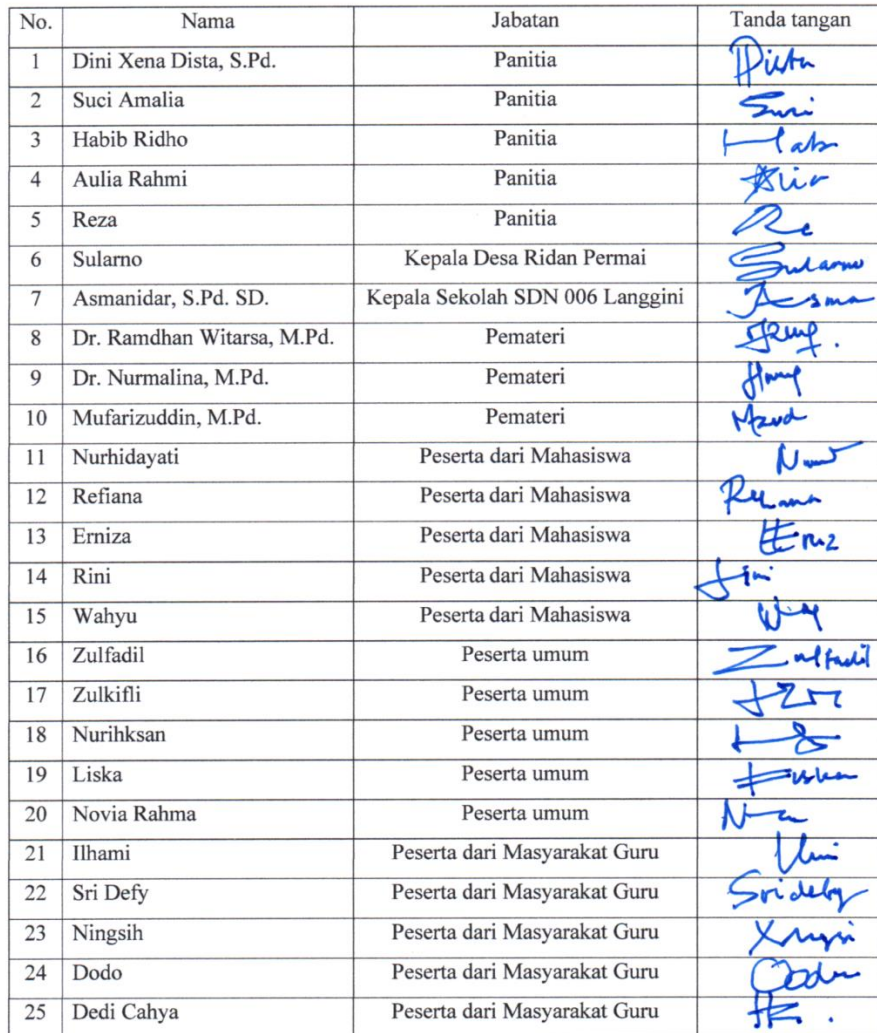 No. Nama Jabatan Tanda tangan
1 Dini Xena Dista, S.Pd. Panitia Dista
2 Suci Amalia Panitia Suci
3 Habib Ridho Panitia Hab
4 Aulia Rahmi Panitia
5 Reza Panitia Re
6 Sularno Kepala Desa Ridan Permai Sularno
7 Asmanidar, S.Pd. SD. Kepala Sekolah SDN 006 Langgini Asma
8 Dr. Ramdhan Witarsa, M.Pd. Pemateri
9 Dr. Nurmalina, M.Pd. Pemateri
10 Mufarizuddin, M.Pd. Pemateri
11 Nurhidayati Peserta dari Mahasiswa
12 Refiana Peserta dari Mahasiswa
13 Erniza Peserta dari Mahasiswa
14 Rini Peserta dari Mahasiswa
15 Wahyu Peserta dari Mahasiswa
16 Zulfadil Peserta umum Zulfadil
17 Zulkifli Peserta umum
18 Nurihksan Peserta umum
19 Liska Peserta umum
20 Novia Rahma Peserta umum
21 Ilhami Peserta dari Masyarakat Guru
22 Sri Defy Peserta dari Masyarakat Guru
23 Ningsih Peserta dari Masyarakat Guru
24 Dodo Peserta dari Masyarakat Guru
25 Dedi Cahya Peserta dari Masyarakat Guru